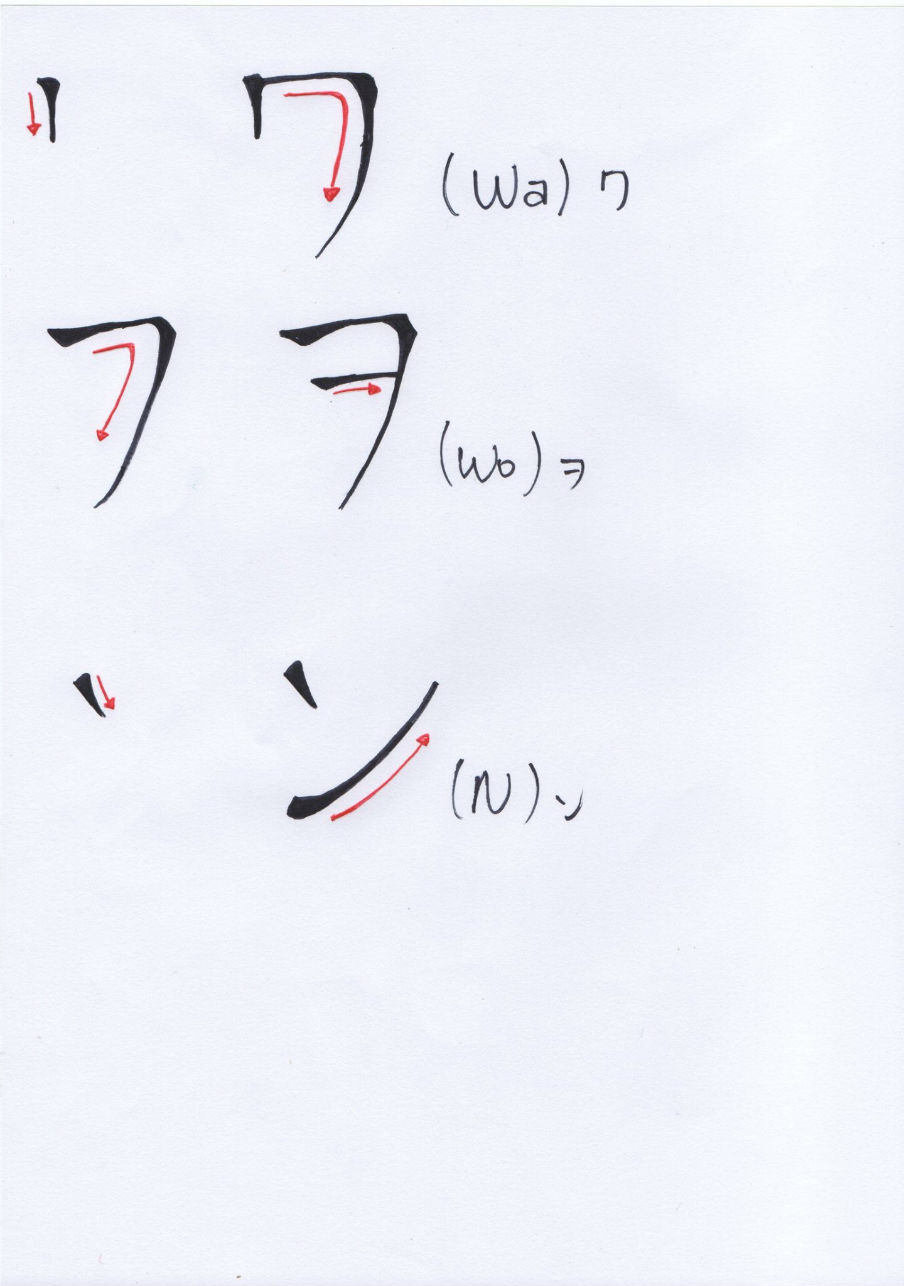 ワ (Wa) ワ
フ ヲ (Wo) ヲ
ン (N) ン